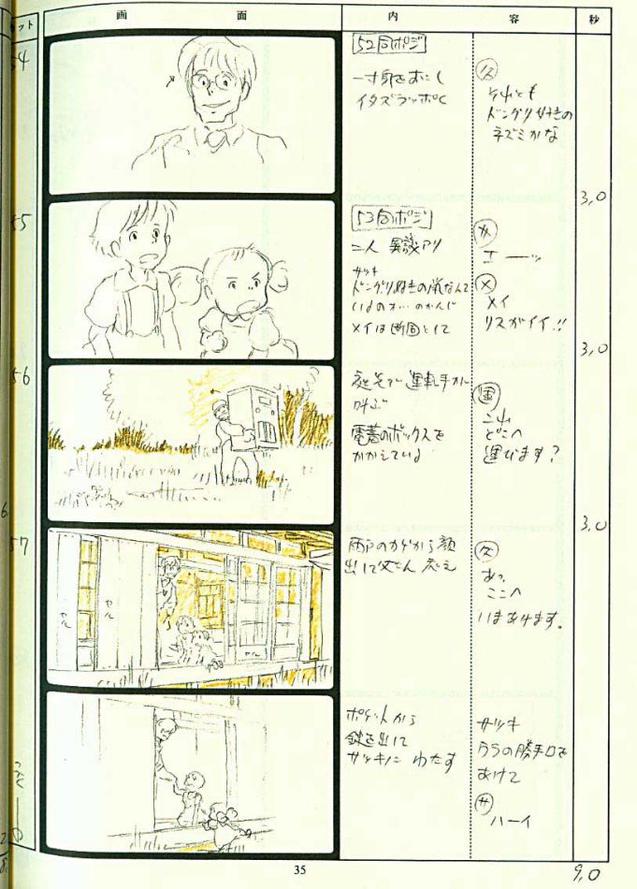 ット 画面 内容 秒
54
52同ポジ
一寸身をおこし
イタズラッポく
父
それとも
ドングリ好きの
ネズミかな
3,0
55
53同ポジ
二人 異議アリ
サツキ
ドングリ好きの
メイは断固として
サ
エーーッ
メ
メイ
リスがイイ!!
3,0
56
運転手が
叫ぶ
電蓄のボックスを
かかえている
これ
どこへ
運びます?
3,0
57
雨戸のカゲから顔
出して父さん
父
あっ
ここへ
いまあけます。
セル
セル
セル
ポケットから
鍵を出して
サツキに わたす
サツキ
ウラの勝手口を
あけて
サ
ハーイ
9,0
35